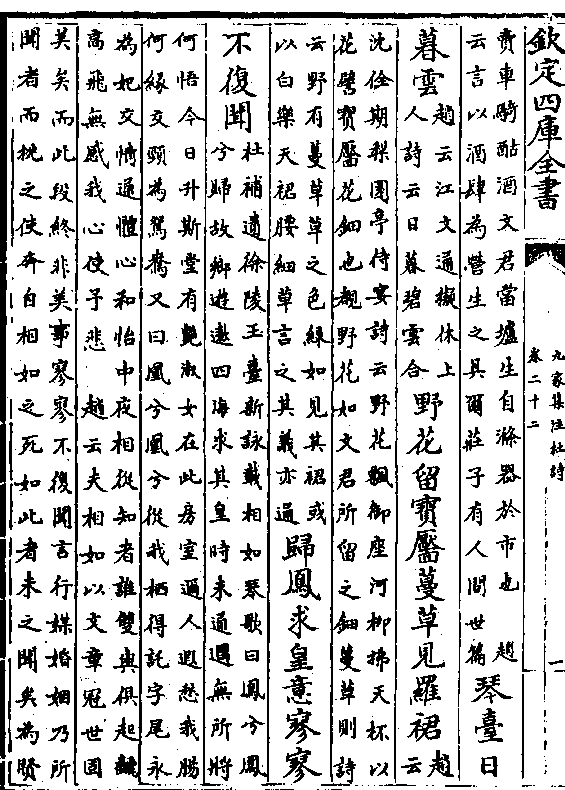 欽定四庫全書
九家集注杜詩
卷二十二
一
賣車騎酤酒文君當壚生自滌器於市也　趙
云言以酒肆為營生之具爾莊子有人間世篇
琴臺日
暮雲
趙云江文通擬休上
人詩云日暮碧雲合
野花留寶靨蔓草見羅裙
趙
云
沈佺期梨園亭侍宴詩云野花飄御座河柳拂天杯以
花譬寶靨花鈿也覩野花如文君所留之鈿蔓草則詩
云野有蔓草草之色緑如見其裙或
以白樂天裙腰細草言之其義亦通
歸鳳求皇意寥寥
不復聞
杜補遺徐陵玉臺新詠載相如琴歌曰鳳兮鳳
兮歸故鄉遊遨四海求其皇時未通遇無所將
何悟今日升斯堂有艶淑女在此房室邇人遐愁我腸
何緣交頸為鴛鴦又曰凰兮凰兮從我栖得託字尾永
為妃交情通體心和怡中夜相從知者誰雙興俱起翻
高飛無感我心使予悲　趙云夫相如以文章冠世固
美矣而此段終非美事寥寥不復聞言行媒婚姻乃所
聞者而枕之使奔自相如之死如此者未之聞矣為賢